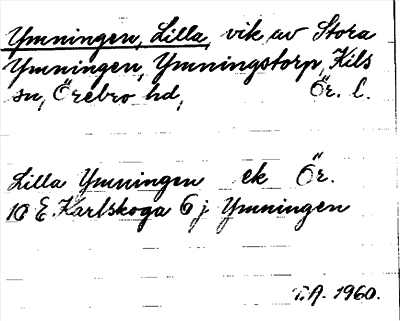 Ymningen, Lilla, vik av Stora
Ymningen, Ymningstorp, Kils
sn, Örebro hd, Ör. l.
Lilla Ymningen ek Ör.
10 E. Karlskoga 6 j Ymningen
T.A. 1960.